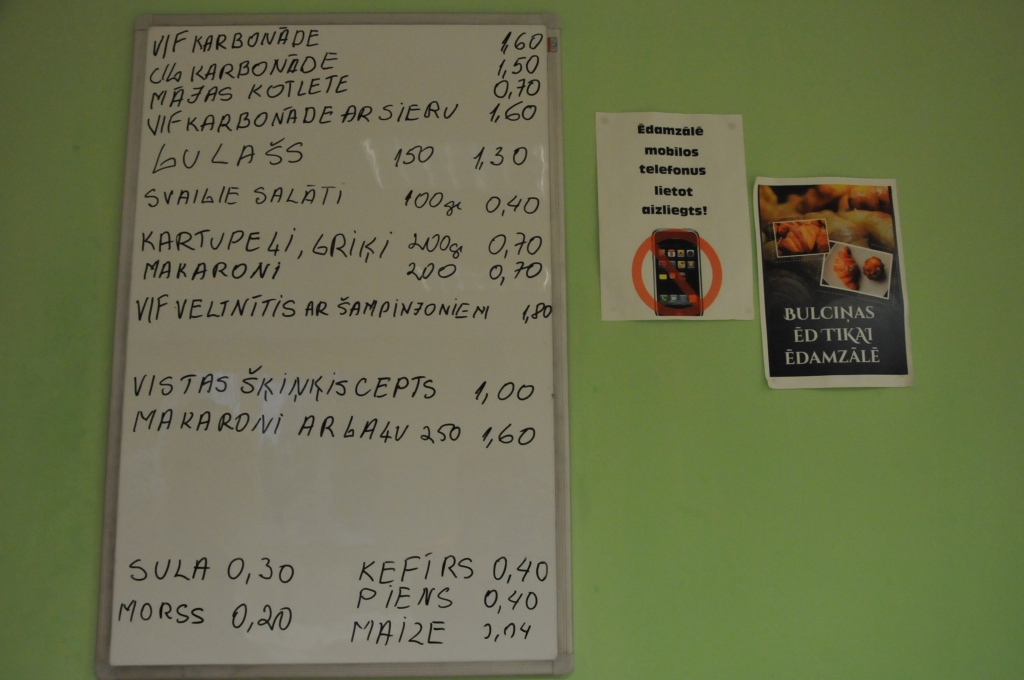 V/F KARBONĀDE 1,60
C/G KARBONĀDE 1,50
MĀJAS KOTLETE 0,70
V/F KARBONĀDE AR SIERU 1,60
GULAŠS 150 1,30
SVAIGIE SALĀTI 100gr 0,40
KARTUPEĻI, GRIĶI 200gr 0,70
MAKARONI 200 0,70
V/F VELTNĪTIS AR ŠAMPINJONIEM 1,80
VISTAS ŠĶIŅĶIS CEPTS 1,00
MAKARONI AR GAĻU 250 1,60
SULA 0,30
MORSS 0,20
ĶEFĪRS 0,40
PIENS 0,40
MAIZE 0,04
Ēdamzālē
mobilos
telefonus
lietot
aizliegts!
BULCIŅAS
ĒD TIKAI
ĒDAMZĀLĒ